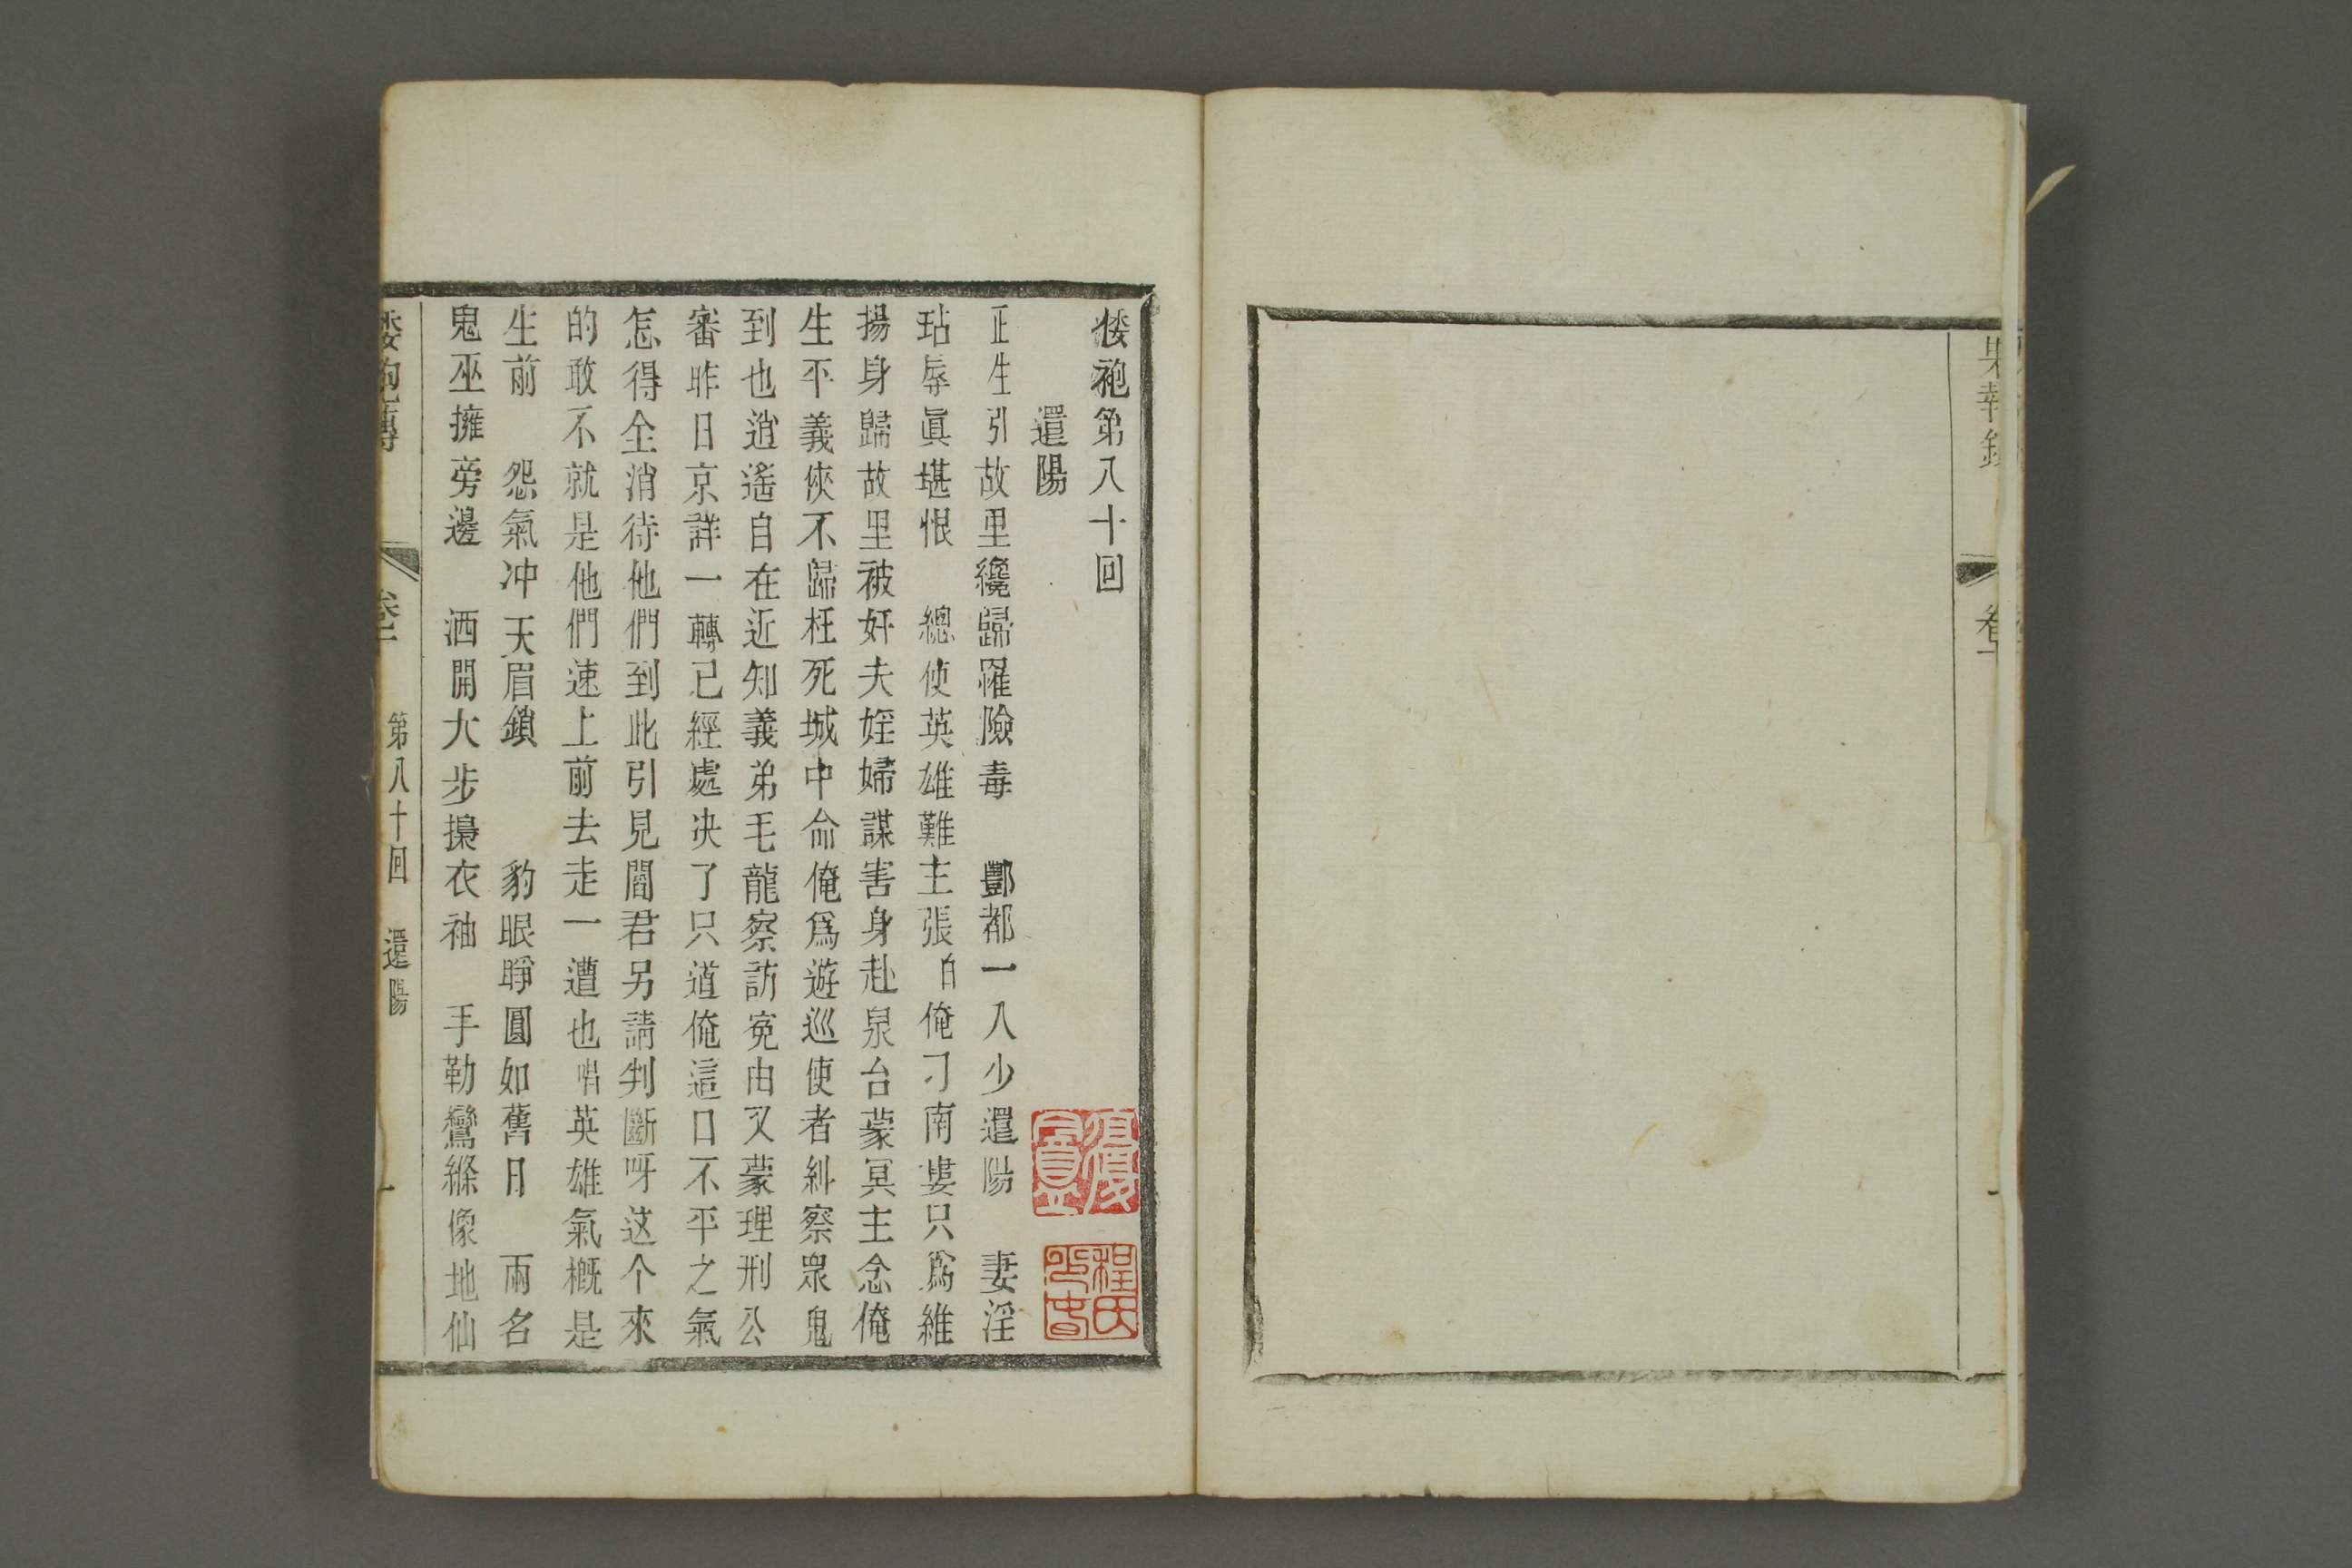 果報錄
倭袍第八十回
還陽
正生引故里纔歸罹險毒　酆都一入少還陽　妻淫
玷辱眞堪恨　總使英雄難主張白俺刁南婁只爲維
揚身歸故里被奸夫婬婦謀害身赴泉台蒙冥主念俺
生平義俠不歸枉死城中命俺爲遊巡使者糾察眾鬼
到也逍遙自在近知義弟毛龍察訪寃由又蒙理刑公
審昨日京詳一轉已經處决了只道俺這口不平之氣
怎得全消待他們到此引見閻君另請判斷呀这个來
的敢不就是他們速上前去走一遭也唱英雄氣概是
生前　怨氣冲天眉鎖　豹眼睜圓如舊日　兩名
鬼巫擁旁邊　洒開大步揭衣袖　手勒鸞縧像地仙
倭袍傳　第八十回　還陽　一
程氏